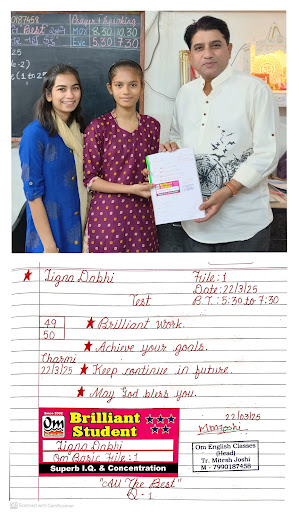 0187458
Prayer + Speaking
Best
MOR 8.30 10.30
Eve 5.30 7.30
(1 to 25
★ Tigna Dabhi
File : 1
Date : 22/3/25
Test
B.T. : 5:30 to 7:30
49
50
★ Brilliant work.
★ Achieve your goals.
Charmi
22/3/25
★ Keep continue in future.
★ May God bless you.
Since 2002
Om
Brilliant
Student
Tigna Dabhi
Om Basic File : 1
Superb I.Q. & Concentration
22/03/25
Om English Classes
(Head)
Tr. Mitesh Joshi
M - 7990187458
"All The Best"
Q - 1
Scanned with CamScanner